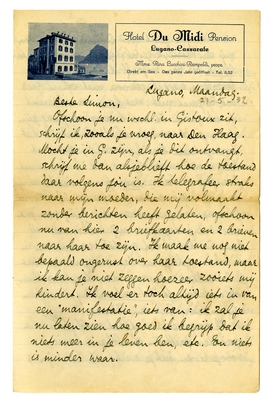 Hotel Du Midi Pension
Lugano-Cassarate
Direkt am See - Das ganze Jahr geöffnet - Tel.
Lugano, Maandag.
Beste Simon,
Ofschoon je nu wscht. in Gistoux zit,
schrijf ik, zooals je vroeg, naar Den Haag.
Mocht je in G. zijn, als je dit ontvangt,
schrijf me dan alsjeblieft hoe de toestand
daar volgens jou is. Ik telegrafeer straks
naar mijn moeder, die mij volmaakt
zonder berichten heeft gelaten, ofschoon
nu van hier 2 briefkaarten en 2 brieven
naar haar toe zijn. Ik maak me nog niet
bepaald ongerust over haar toestand, maar
ik kan je niet zeggen hoezeer zooiets mij
hindert. Ik voel er toch altijd iets in van
een "manifestatie", iet van: ik zal je
nu laten zien hoe goed ik begrijp dat ik
niets meer in je leven ben, etc. En niets
is minder waar.